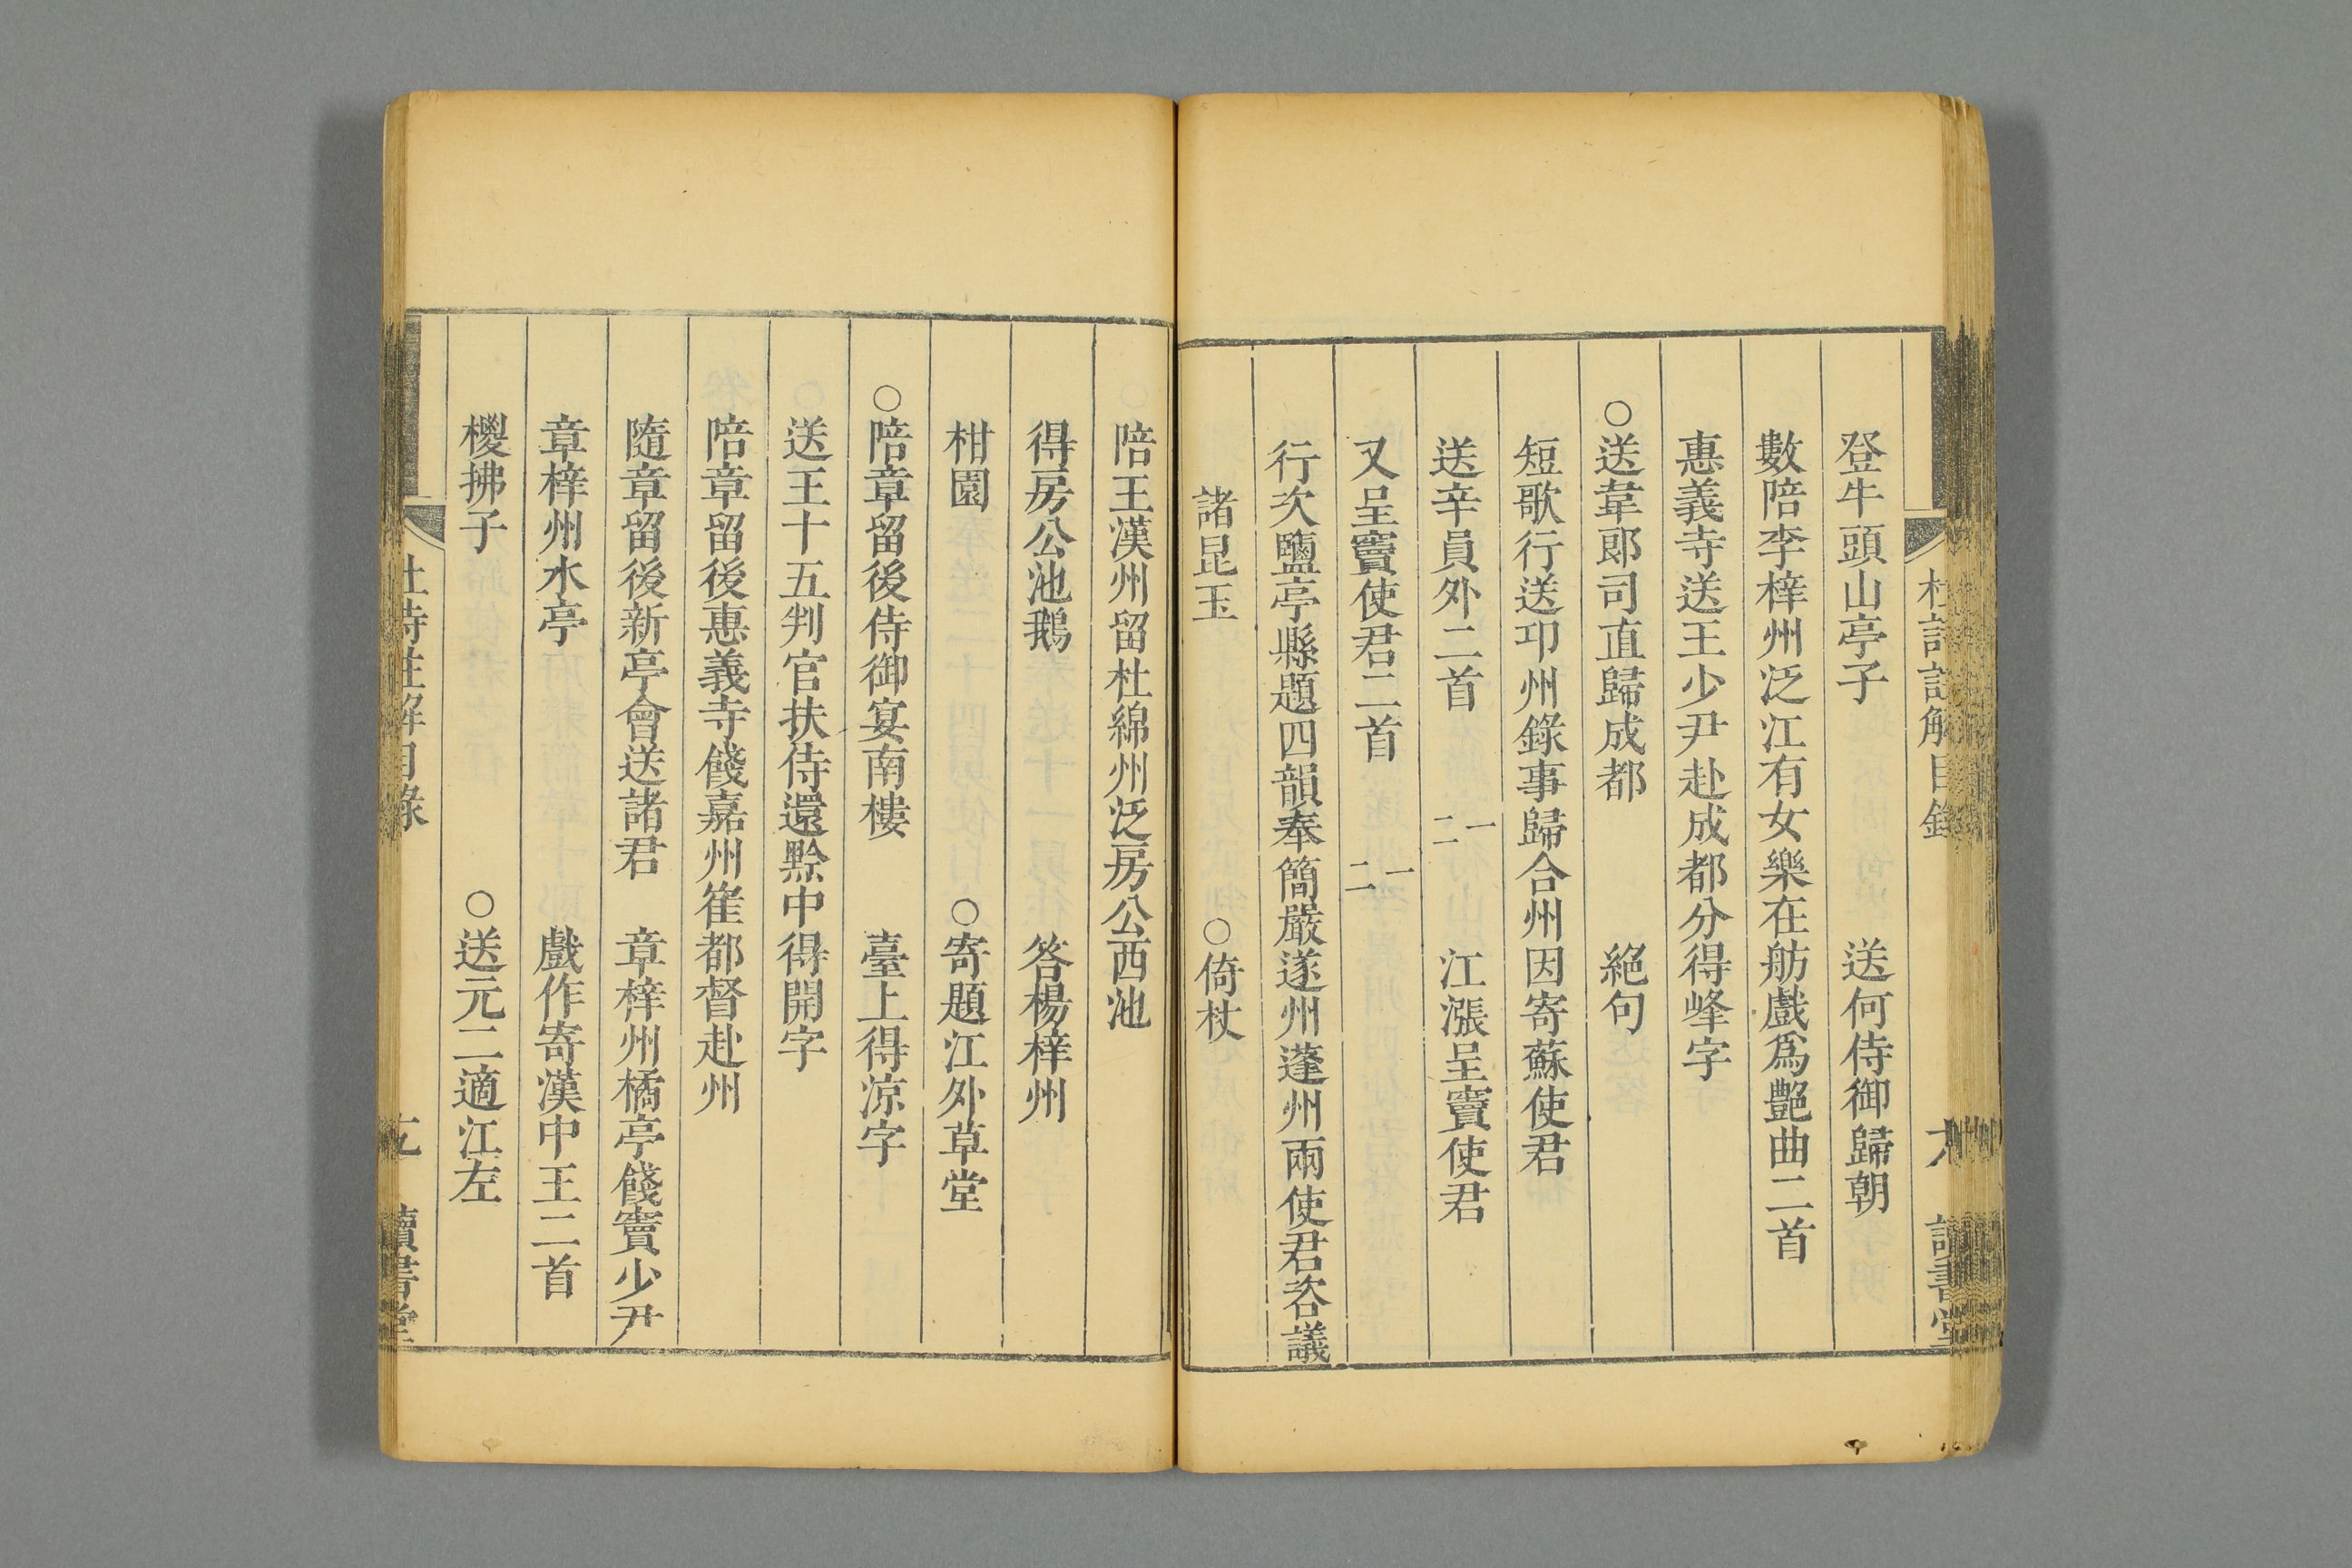 杜詩註解目錄
讀書堂
登牛頭山亭子　送何侍御歸朝
數陪李梓州泛江有女樂在舫戲爲艷曲二首
惠義寺送王少尹赴成都分得峰字
○送韋郎司直歸成都　絕句
短歌行送卭州錄事歸合州因寄蘇使君
送辛員外二首 一 二　江漲呈竇使君
又呈竇使君二首 一 二
行次鹽亭縣題四韻奉簡嚴遂州蓬州兩使君咨議
諸昆玉　○倚杖
陪王漢州留杜綿州泛房公西池
得房公池鵝　答楊梓州
柑園　○寄題江外草堂
○陪章留後侍御宴南樓　臺上得涼字
送王十五判官扶侍還黔中得開字
陪章留後惠義寺餞嘉州崔都督赴州
隨章留後新亭會送諸君　章梓州橘亭餞竇少尹
章梓州水亭　戲作寄漢中王二首
椶拂子　○送元二適江左
杜詩註解目錄
讀書堂